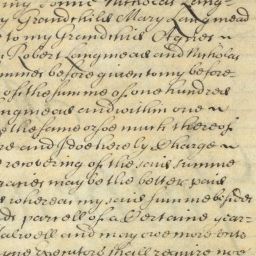 my Grandchild Mary Langmead
to my Grandchild Agnes
Robert Langmead and Nicholas
summes before given to my before
of the summe of one hundred
Langmead and within one
the same or soe much thereof
and I doe hereby Charge
recovering of the said summe
may be the better paid
whereas my said summe besides
parnell of a Certaine year
and may owe more
executors shall require